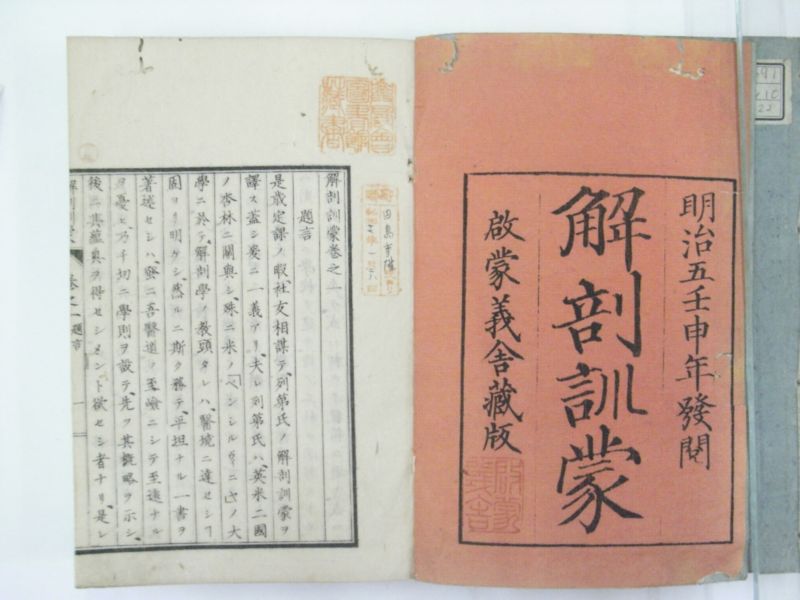 明治五壬申年發閱
解剖訓蒙
啟蒙義舍藏版
解剖訓蒙卷之一
題言
是歲定課ノ暇、社友相謀テ、列第氏ノ解剖訓蒙ヲ
譯ス蓋シ爰ニ一義アリ、夫レ列第氏ハ、英米二國
ノ杏林ニ關與シ、殊ニ米ノ「ペンシル ニヤ」ノ大
學ニ於テ、解剖學ノ教頭タレハ、醫境ニ達セシヿ
固ヨリ明ケシ、然ルニ斯ク務テ、平坦ナル一書ヲ
著述セシハ、 ニ吾醫道ノ至嶮ニシテ至遠ナル
ヲ憂ヒ、乃千切ニ學則ヲ設テ、先ヲ其概略ヲ示シ、
後ニ其蘊奧ヲ得セシメント欲セシ者ナリ、是レ
解剖訓蒙 卷之一 題言 一